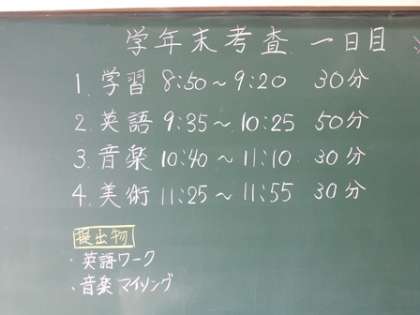 学年末考査 一日目
1. 学習 8:50〜9:20 30分
2. 英語 9:35〜10:25 50分
3. 音楽 10:40〜11:10 30分
4. 美術 11:25〜11:55 30分
提出物
・英語ワーク
・音楽マイソング